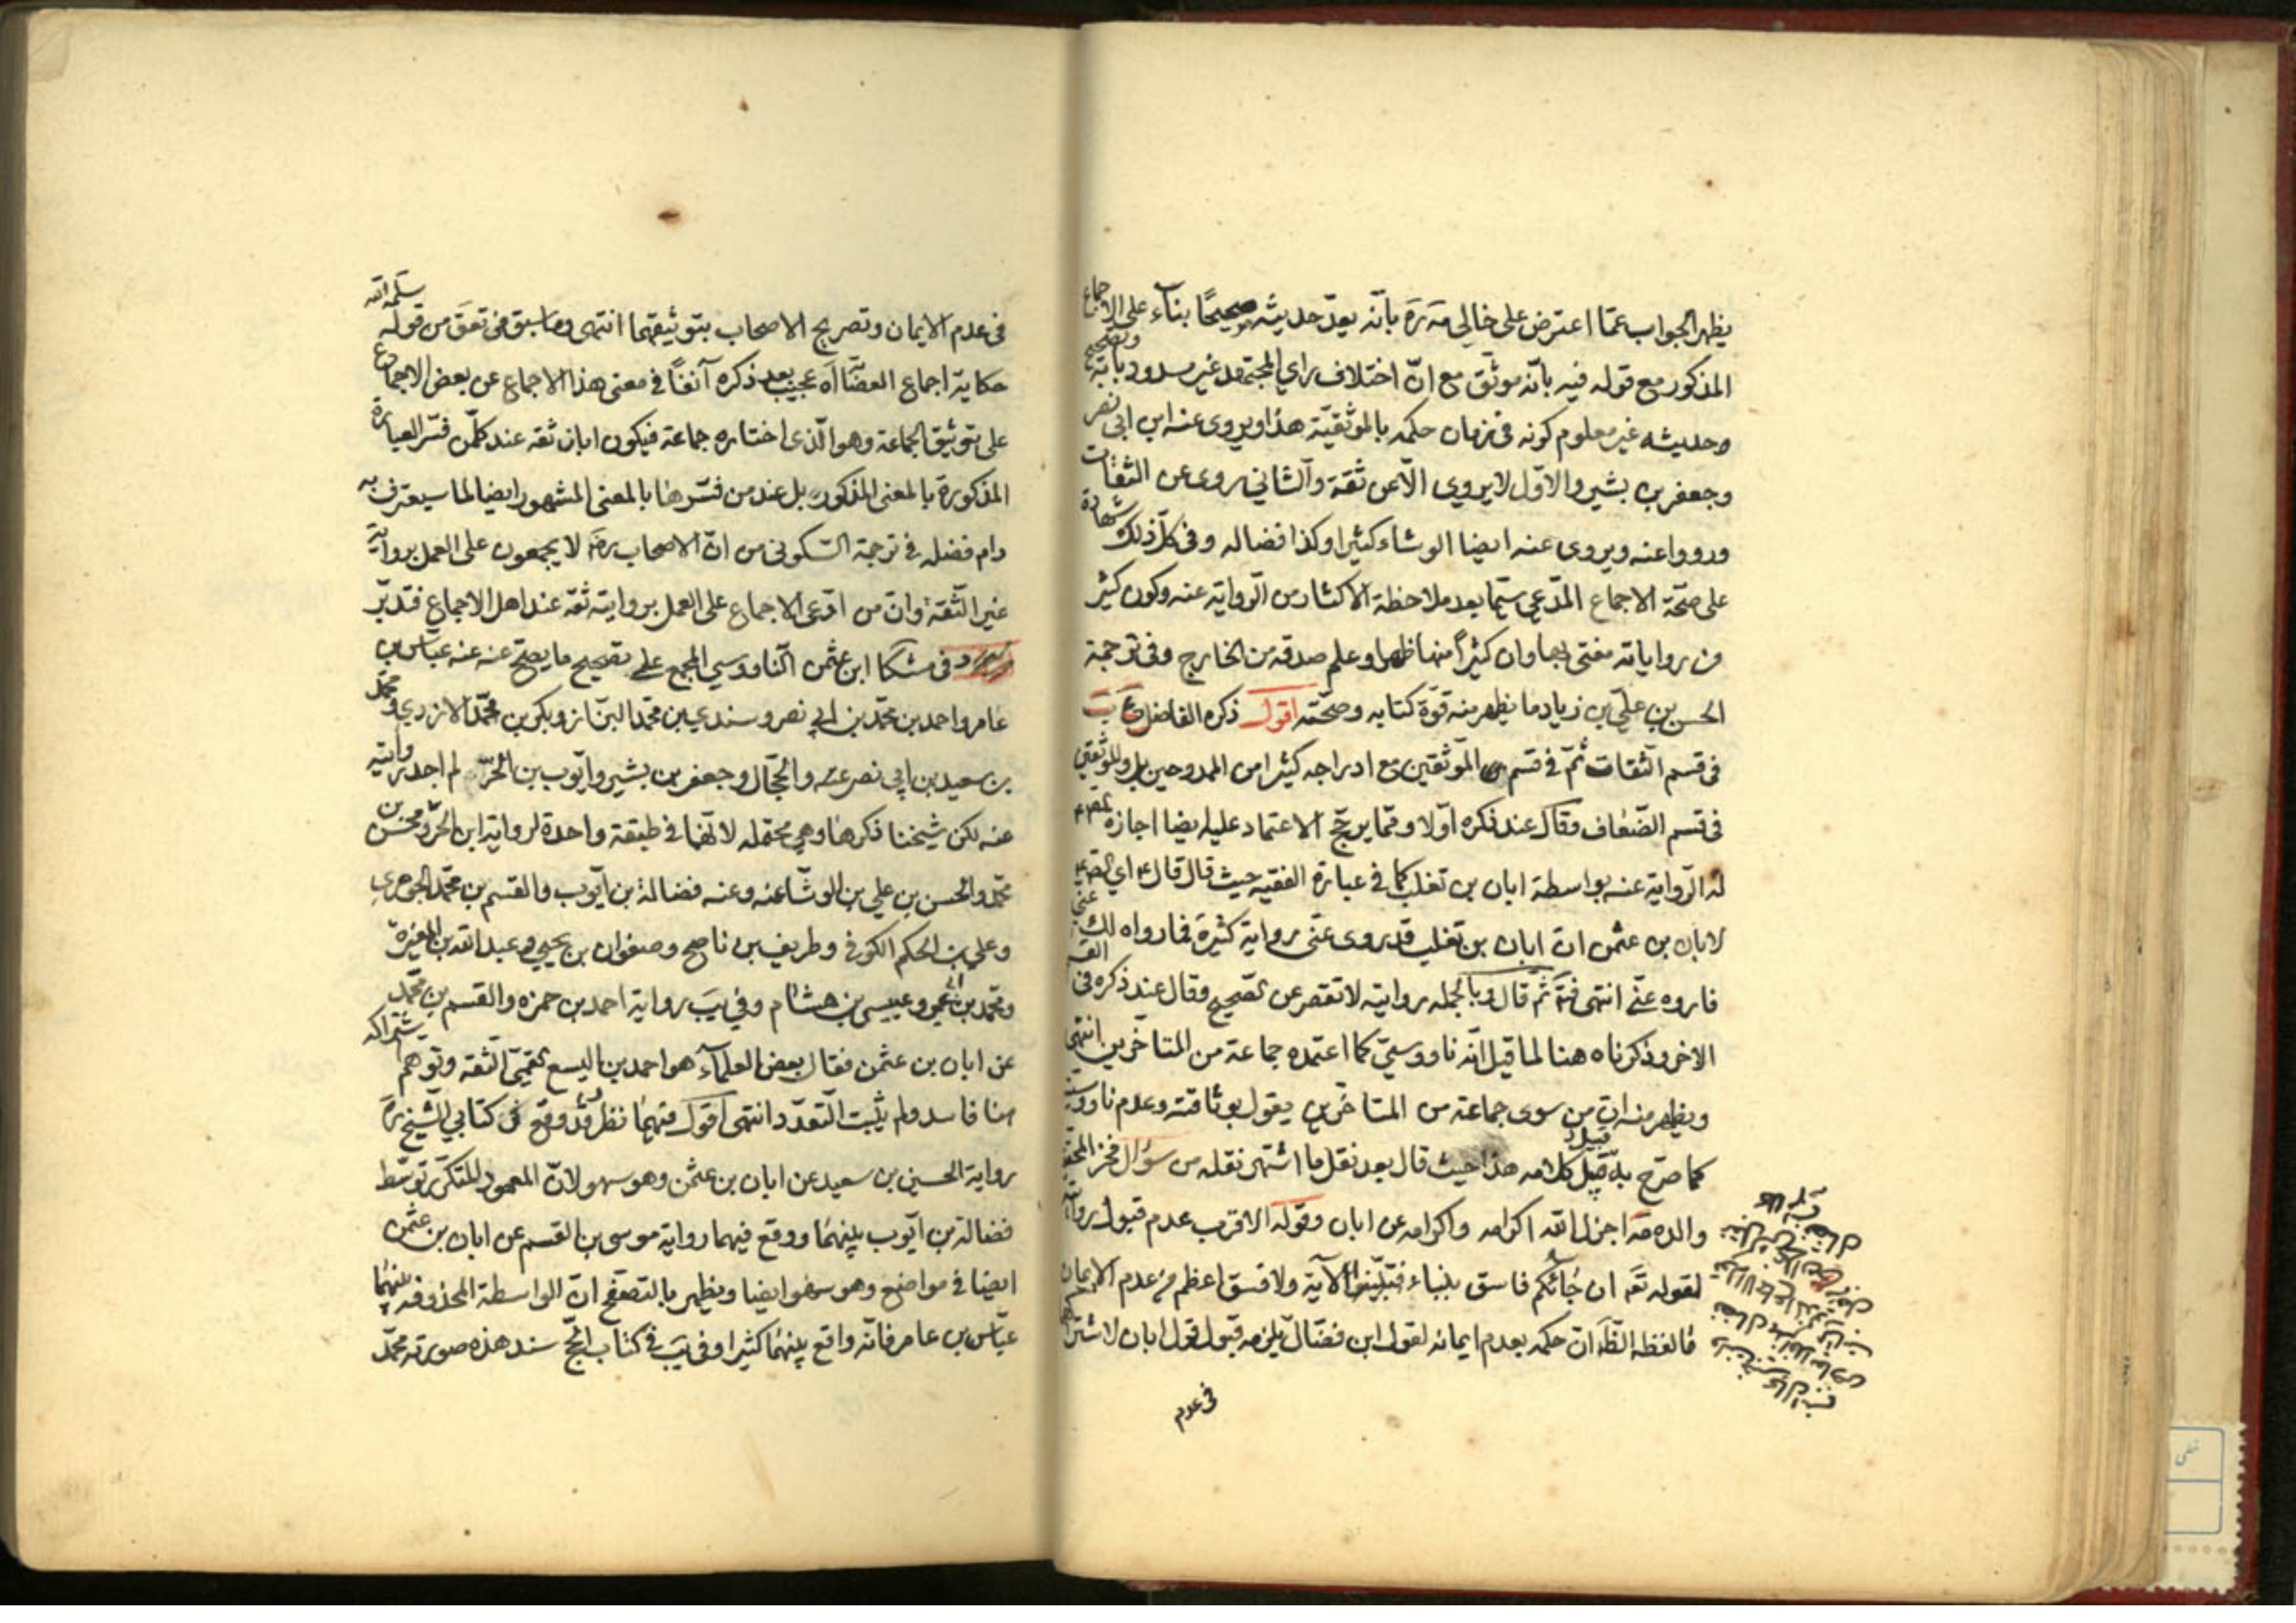 يظهر الجواب عمّا اعترض على خالي مة ره بانّه يعدّ حديثه صحيحًا بناء على الاجماع
المذكور مع قوله فيه بانّه موثّق مع انّ اختلاف راي المجتهد غير مسدود بابه وتصحيح
وحديثه غير معلوم كونه في زمان حكمه بالموثقيّة هذا ويروى عنه ابن ابي نصر
وجعفر بن بشير والاوّل لا يروي الّا عن ثقة والثاني روى عن الثقات
ورووا عنه ويروى عنه ايضا الوشاء كثيرا وكذا فضاله وفى كلّ ذلك شهادة
على صحّة الاجماع المدّعى سيّما بعد ملاحظة الاكثار من الرّواية عنه وكون كثير
من رواياته مفتى بها وان كثيرًا منها ظهر وعلم صدقه من الخارج وفى ترجمة
الحسن بن عليّ بن زياد ما يظهر منه قوّة كتابه وصحّته اقول ذكره الفاضل عب
فى قسم الثقات ثم في قسم الموثّقين مع ادراجه كثيرا من الممدوحين بل والموثقين
فى قسم الضّعاف وقال عند ذكره اوّلا وممّا يرجّح الاعتماد عليه ايضا اجازة
له الرّواية عنه بواسطة ابان بن تغلب كما في عبارة الفقيه حيث قال قال اي الصّ
لابان بن عثمن انّ ابان بن تغلب قد روى عنّي رواية كثيرة فما رواه لك عنّي
فاروه عنّي انتهى ثمّ قال وبالجمله روايته لا تقصر عن الصّحيح وقال عند ذكره فى
الاخر وذكرناه هنا لما قيل انّه ناووسيّ كما اعتمده جماعة من المتاخّرين انتهى
ويظهر منه انّ من سوى جماعة من المتاخّرين يقول بوثاقته وعدم ناووسيّته
كما صرّح به قبيل كلامه هذا حيث قال بعد نقل ما اشتهر نقله من سؤال فخر المحقّقين
والده مة اجزل الله اكرامه واكرامه عن ابان وقوله الاقرب عدم قبول روايته
لقوله تعه ان جائكم فاسق بنباء فتبيّنوا الآية ولا فسق اعظم من عدم الايمان
ما لفظه الظّه انّ حكمه بعدم ايمانه لقول ابن فضّال يلزمه قبول قول ابان لاشتراكهما
فى عدم
فى عدم الايمان وتصريح الاصحاب بتوثيقهما انتهى وما سبق في تعق من قوله سلّمه الله
حكاية اجماع العصّا اه عجيب بعد ذكره آنفًا في معنى هذا الاجماع عن بعض الاجماع
على توثيق الجماعة وهو الّذى اختاره جماعة فيكون ابان ثقه عند كلّ من فسّر العبارة
المذكورة بالمعنى المذكور بل عند من فسّرها بالمعنى المشهور ايضا لما سيعترف به
دام فضله في ترجمة السّكوني من انّ الاصحاب ره لا يجمعون على العمل برواية
غير الثّقة وانّ من ادّعى الاجماع على العمل بروايته ثقه عند اهل الاجماع فتدبّر
وفى مشكا ابن عثمن النّاووسي المجمع على تصحيح ما يصحّ عنه عنه عبّاس بن
عامر واحمد بن محمّد بن ابي نصر وسندي بن محمّد البزّاز وبكر بن محمّد الازدي ومحمّد
بن سعيد بن ابي نصر عنه والحجّال وجعفر بن بشير وايّوب بن الحرّ لم اجد روايته
عنه لكن شيخنا ذكرها وهي محتمله لانّهما في طبقة واحدة لرواية ابن الحرّ ومحسن بن
محمّد والحسن بن علي بن الوشّا عنه وعنه فضالة بن ايّوب والقسم بن محمّد الجوهري
وعلي بن الحكم الكوفي وطريف بن ناصح وصفوان بن يحيى وعبد الله بن المغيرة
ومحمّد بن ابي عمير وعبيس بن هشام وفي يب رواية احمد بن حمزه والقسم بن محمّد
عن ابان بن عثمن فقال بعض العلماء هو احمد بن اليسع القمّي الثّقة وتوهم اشتراكه
هنا فاسد ولم يثبت التّعدّد انتهى اقول فيهما نظر وقد وقع في كتابي الشّيخ ره
رواية الحسين بن سعيد عن ابان بن عثمن وهو سهو لانّ المعهود المتكرّر توسّط
فضالة بن ايّوب بينهما ووقع فيهما رواية موسى بن القسم عن ابان بن عثمن
ايضا في مواضع وهو سهو ايضا ويظهر بالتصفّح انّ الواسطة المحذوفه بينهما
عبّاس بن عامر فانّه واقع بينهما كثيرا وفى يب في كتاب الحجّ سند هذه صورته محمّد